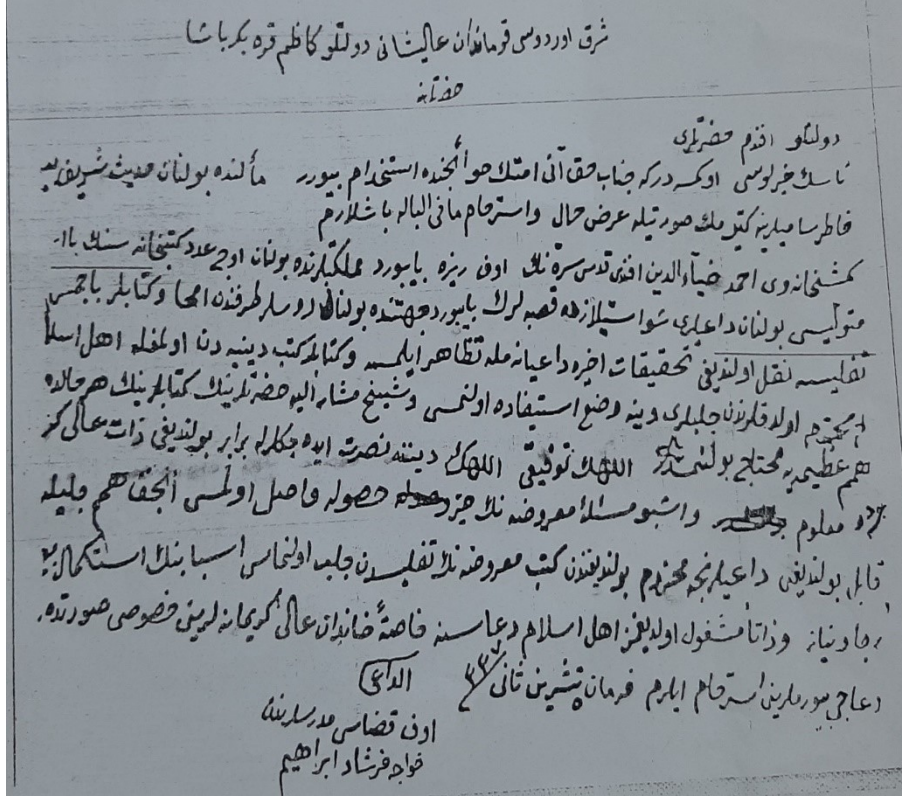 شرق اوردوسی قوماندان عالیشانی دولتلو كاظم قره بكر باشا
حضرتلرینه
دولتلو افندم حضرتلری
ناسك خیرلوسی اوكسه دركه جناب حق آنی امتك حوائجنده استخدام بیورر مألنده بولنان حدیث شریفی
خاطر سامیلرینه كتیرمك صورتیله عرض حال واسترحام مافی الباله باشلارم
كمشخانه وی احمد ضیاءالدین افندی قدس سره نك اوف ریزه بایبورد مملكتلرنده بولنان اوچ عدد كتبخانه سنك
متولیسی بولنان داعیلری شو استیلازده قصبه لرك بایبورد جهتنده بولنان روسلر طرفندن امحا وكتابلر
تفلیسه نقل اولندیغی تحقیقات اخیره داعیانه مله تظاهر ایلمسه وكتابلر كتب دینیه دن اولمغله اهل اسلام
اولدقلرندن جلبلری وینه وضع استفاده اولنمسی وشیخ مشار الیه حضرتلرینك كتابلرینك هر حالده
همم عظیمه یه محتاج بولنمسیله اللهك توفیقی اللهك دیننه نصرت ایده جكلرله برابر بولندیغی ذات عالیكز
معلوم واشبو مسئلۀ معروضه نك حیز حصوله واصل اولمسی آنجق همم جلیله
قابل بولندیغی داعیلرنجه مجزوم بولندیغندن كتب معروضه نك تفلیسدن جلب اولنماسی اسبابنك استكمالی
رجا ونیاز وذاتا مشغول اولدیغمز اهل اسلام دعاسنه خاصةً خاندان عالئ كریمانه لرینی خصوصی صورتده
دعاجی بیورملرینی استرحام ایلرم فرمان تشرین ثانی ٣٣٧
الداعی
اوف قضاسی مدرسلرندن
خواجه فرشاد ابراهیم